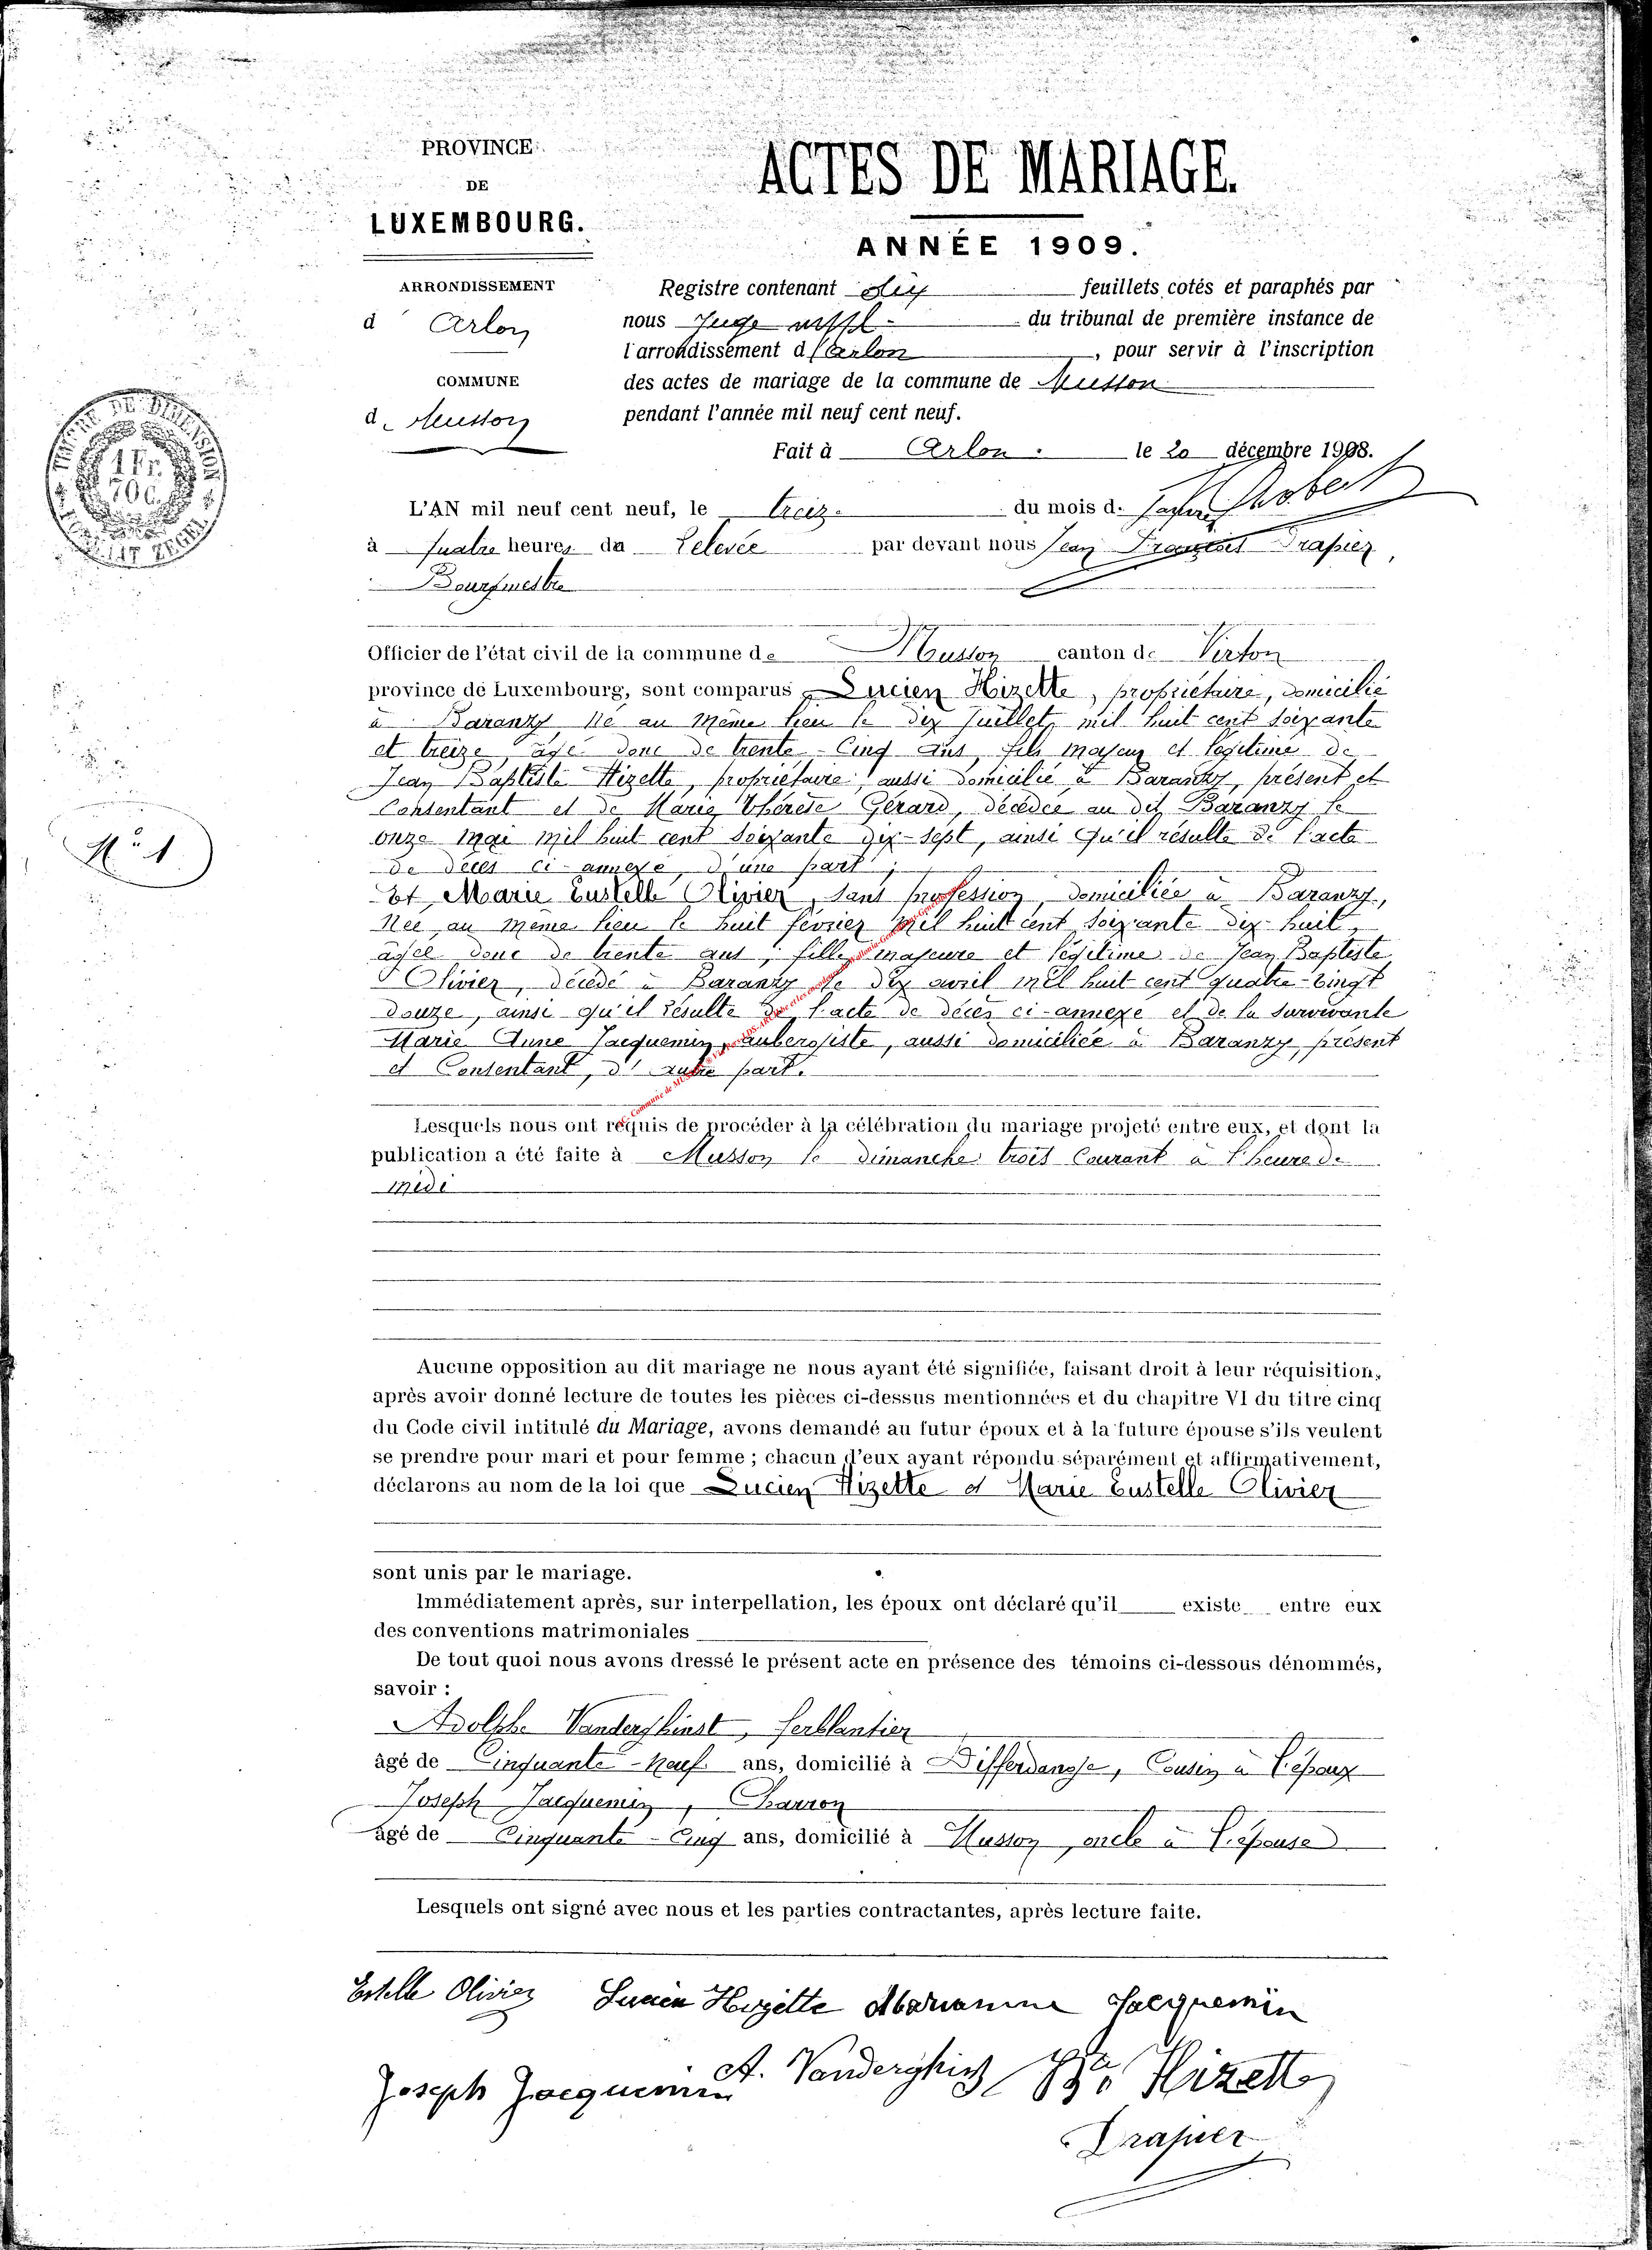 PROVINCE
DE
LUXEMBOURG.
ACTES DE MARIAGE.
ANNÉE 1909.
ARRONDISSEMENT
d' Arlon
COMMUNE
de Musson
Registre contenant dix feuillets cotés et paraphés par
nous Juge du tribunal de première instance de
l'arrondissement d'Arlon, pour servir à l'inscription
des actes de mariage de la commune de Musson
pendant l'année mil neuf cent neuf.
Fait à Arlon. le 20 décembre 1908.
TIMBRE DE DIMENSION
1 Fr.
70 C.
ZEGEL
L'AN mil neuf cent neuf, le treize du mois de Janvier
à quatre heures de relevée par devant nous Jean François Drapier,
Bourgmestre
Officier de l'état civil de la commune de Musson canton de Virton
province de Luxembourg, sont comparus Lucien Hizette, propriétaire, domicilié
à Baranzy, né au même lieu le dix Juillet mil huit cent soixante
et treize, âgé donc de trente-cinq ans, fils majeur et légitime de
Jean Baptiste Hizette, propriétaire, aussi domicilié à Baranzy, présent et
consentant et de Marie Thérèse Gérard, décédée au dit Baranzy le
onze mai mil huit cent soixante dix-sept, ainsi qu'il résulte de l'acte
de décès ci-annexé, d'une part;
N° 1
Et Marie Eustelle Olivier, sans profession, domiciliée à Baranzy,
née au même lieu le huit février mil huit cent soixante dix-huit,
âgée donc de trente ans, fille majeure et légitime de Jean Baptiste
Olivier, décédé à Baranzy le dix avril mil huit cent quatre-vingt
douze, ainsi qu'il résulte de l'acte de décès ci-annexé et de la survivante
Marie Anne Jacquemin, aubergiste, aussi domiciliée à Baranzy, présent
et consentant, d'autre part.
Lesquels nous ont requis de procéder à la célébration du mariage projeté entre eux, et dont la
publication a été faite à Musson le dimanche trois courant à l'heure de
midi
Aucune opposition au dit mariage ne nous ayant été signifiée, faisant droit à leur réquisition,
après avoir donné lecture de toutes les pièces ci-dessus mentionnées et du chapitre VI du titre cinq
du Code civil intitulé du Mariage, avons demandé au futur époux et à la future épouse s'ils veulent
se prendre pour mari et pour femme ; chacun d'eux ayant répondu séparément et affirmativement,
déclarons au nom de la loi que Lucien Hizette et Marie Eustelle Olivier
sont unis par le mariage.
Immédiatement après, sur interpellation, les époux ont déclaré qu'il existe entre eux
des conventions matrimoniales
De tout quoi nous avons dressé le présent acte en présence des témoins ci-dessous dénommés,
savoir :
Adolphe Vanderghinst, ferblantier
âgé de cinquante-neuf ans, domicilié à Differdange, cousin à l'époux
Joseph Jacquemin, Charron
âgé de cinquante-cinq ans, domicilié à Musson, oncle à l'épouse
Lesquels ont signé avec nous et les parties contractantes, après lecture faite.
Estelle Olivier Lucien Hizette Marianne Jacquemin
Joseph Jacquemin A. Vanderghinst Bte Hizette
Drapier